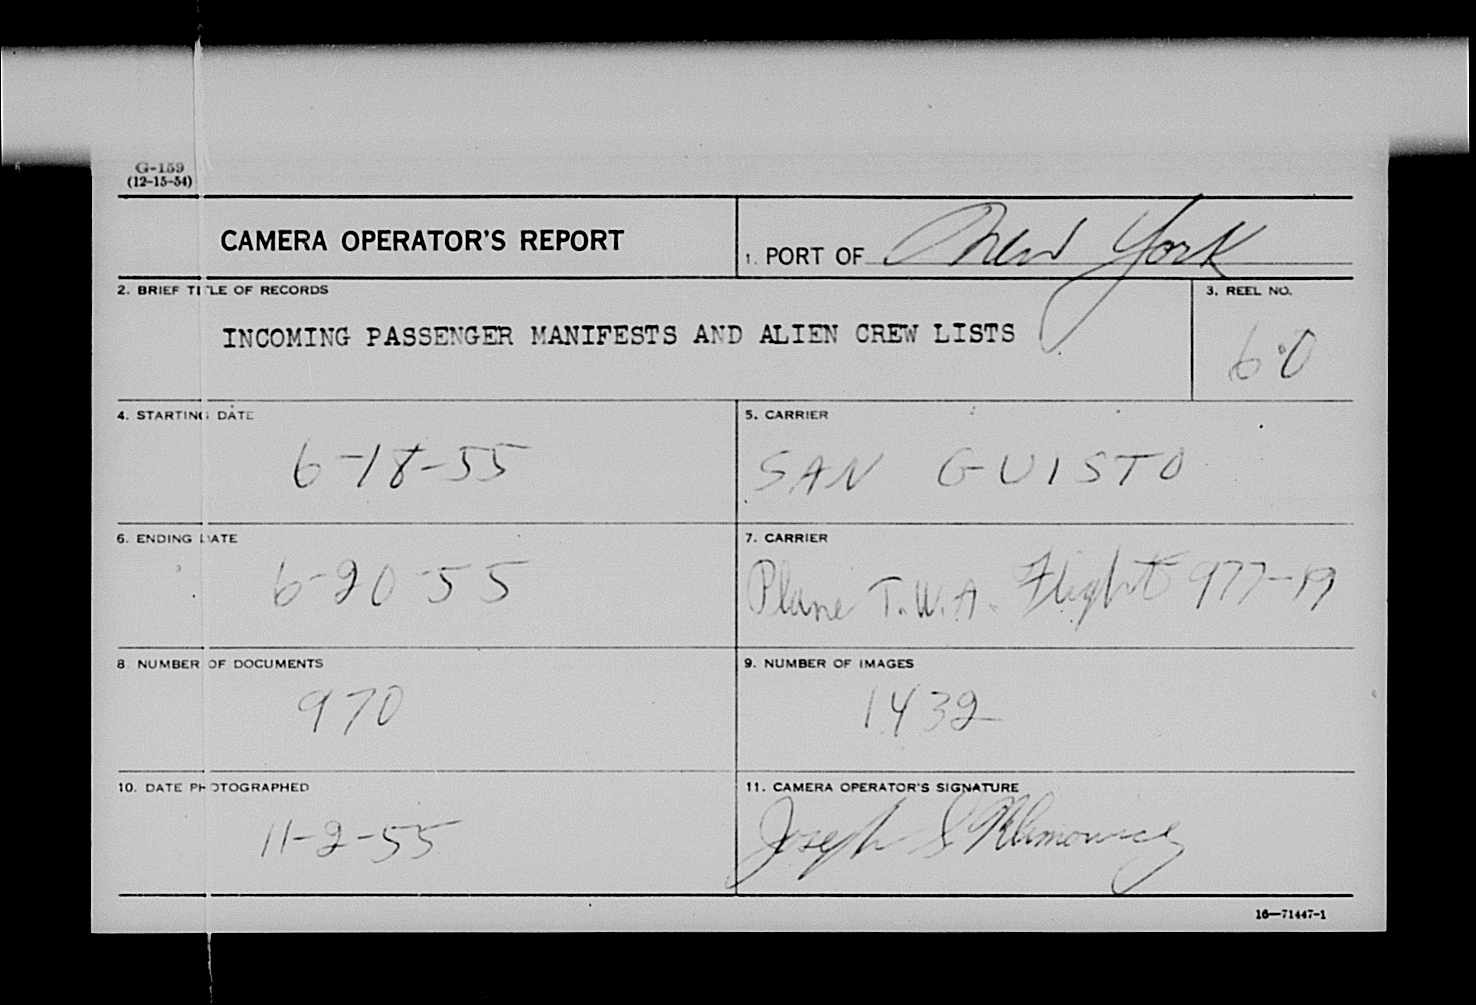 G-159
(12-15-54)
CAMERA OPERATOR'S REPORT
1. PORT OF New York
2. BRIEF TITLE OF RECORDS
INCOMING PASSENGER MANIFESTS AND ALIEN CREW LISTS
3. REEL NO.
60
4. STARTING DATE
6-18-55
5. CARRIER
SAN GUISTO
6. ENDING DATE
6-20-55
7. CARRIER
Plane T.W.A. Flight 977-19
8. NUMBER OF DOCUMENTS
970
9. NUMBER OF IMAGES
1432
10. DATE PHOTOGRAPHED
11-2-55
11. CAMERA OPERATOR'S SIGNATURE
Joseph S Klimowicz
16—71447-1